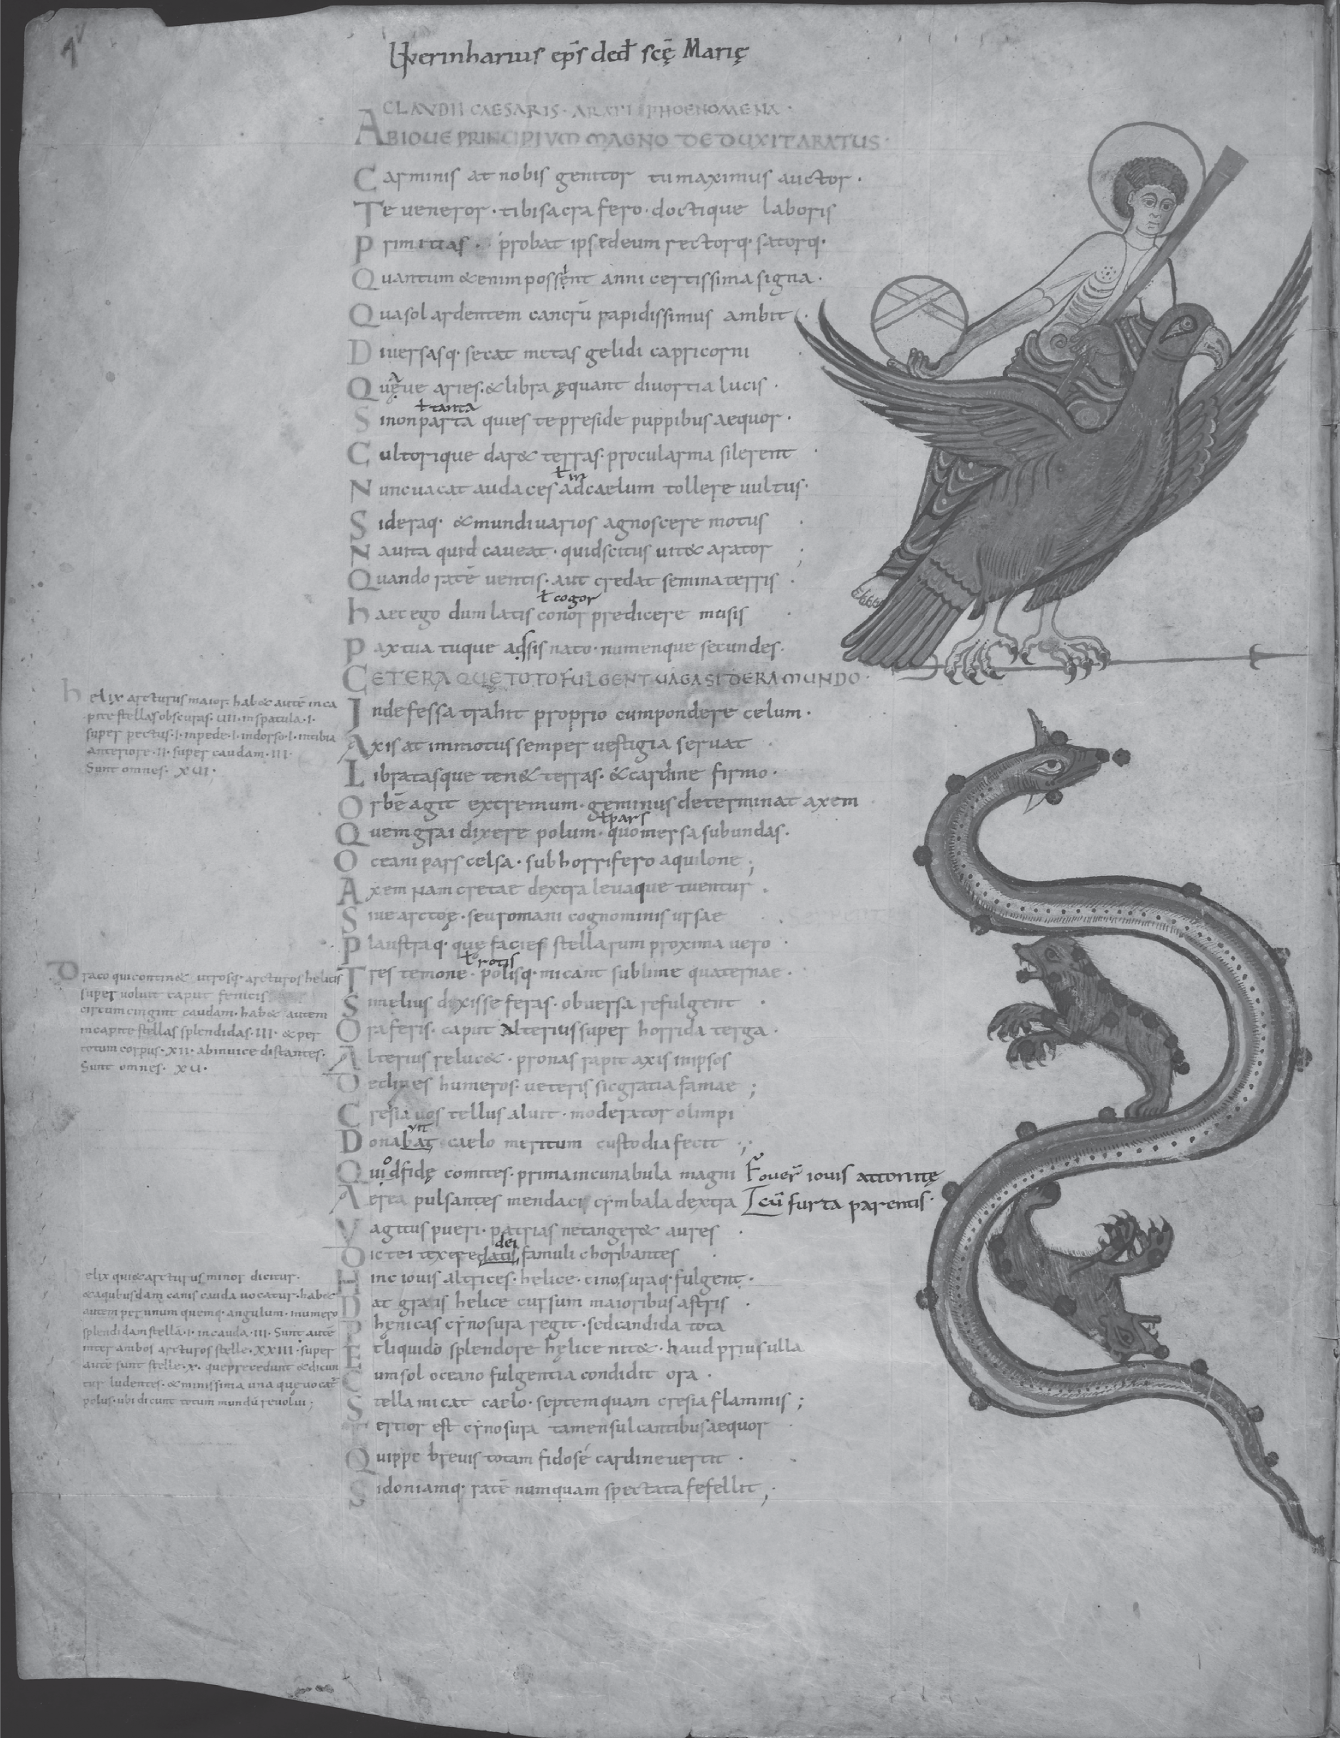 Uuerinharius ep̄s ded̄ scę̄ Marię
CLAVDII CAESARIS · ARATI PHOENOMENA ·
ABIOVE PRINCIPIVM MAGNO DEDUXIT ARATUS ·
Carminis at nobis genitor tu maximus auctor ·
Te ueneror · tibi sacra fero · doctique laboris
Primitias · probat ipse deum rectorq· satorq·
Quantum &enim possent anni certissima signa ·
Qua sol ardentem cancrū rapidissimus ambit ·
Diuersasq· secat metas gelidi capricorni
Quęue aries · & libra ęquant diuortia lucis ·
ł tanta
Si non parta quies te preside puppibus aequor ·
Cultorique dar& terras · procul arma silerent
ł in
Nunc uacat audaces ad caelum tollere uultus ·
Sideraq· & mundi uarios agnoscere motus
Nauita quid caueat · quid scitus uit& arator ;
Quando ratē uentis · aut credat semina terris ·
ł cogor
Haec ego dum latis conor predicere musis
Pax tua tuque adsis nato · numenque secundes ·
CETERA QUE TOTO FULGENT UAGA SIDERA MUNDO ·
Indefessa trahit proprio cum pondere celum ·
Axis at immotus semper uestigia seruat
Libratasque ten& terras · & cardine firmo ·
Orbē agit extremum · geminus determinat axem
ł pars
Quem grai dixere polum · quo mersa sub undas ·
Oceani pars celsa · sub horrifero aquilone ;
Axem Nam cretae dextra leuaque tuentur
Siue arctoę · seu romani cognominis ursae
Plaustraq· que facies stellarum proxima uero ·
ł rotis
Tres temone · polisq· micant sublime quaternae ·
Si melius dixisse feras · obuersa refulgent
Ora feris · caput alterius super horrida terga ·
Alterius reluc& · pronas rapit axis in ipsos
Decliues humeros · ueteris sic gratia famae ;
Cresia uos tellus aluit · moderator olimpi
Donabat caelo meritum custodia fecit ;
Quod fidę comites · prima incunabula magni Fouer̄ iouis attonitę
Aerea pulsantes mendaci cymbala dextra cū furta parentis ·
Vagitus pueri · patrias ne tanger& aures
dei
Dictei texere famuli choribantes
Hinc iouis altrices · helice · cinosuraq· fulgent ·
Dat grais helice cursum maioribus astris
Phenicas cynosura regit · sed candida tota
Et liquido splendore hęlice nit& · haud prius ulla
Cum sol oceano fulgentia condidit ora ·
Stella micat caelo · septem quam cresia flammis ;
Certior est cynosura tamen sulcantibus aequor
Quippe breuis totam fido se cardine uertit
Sidoniamq· ratē numquam spectata fefellit ;
Helix arcturus maior · hab& autē in ca
pite stellas obscuras · UII · in spatula · I ·
super pectus · I · in pede · I · in dorso · I · in tibia
anteriore · II · super caudam · III ·
Sunt omnes · XUI ·
Draco qui contin& utrosq· arcturos helicis
super uoluit caput fenicis
circum cingint caudam · hab& autem
in capite stellas splendidas · III · & per
totum corpus · XII · ab inuice distantes ·
Sunt omnes · XU ·
elix qui & arcturus minor dicitur ·
& a quibusdam canis cauda uocatur · hab&
autem per unum quemq· angulum · in umero
splendidam stella · I · in cauda · III · Sunt autē
inter ambos arcturos stelle · XXIII · super
autē sunt stelle · X · que precedunt & dicun
tur ludentes · & minissima una que uocat̄
polus · ubi dicunt totum mundū reuolui ;